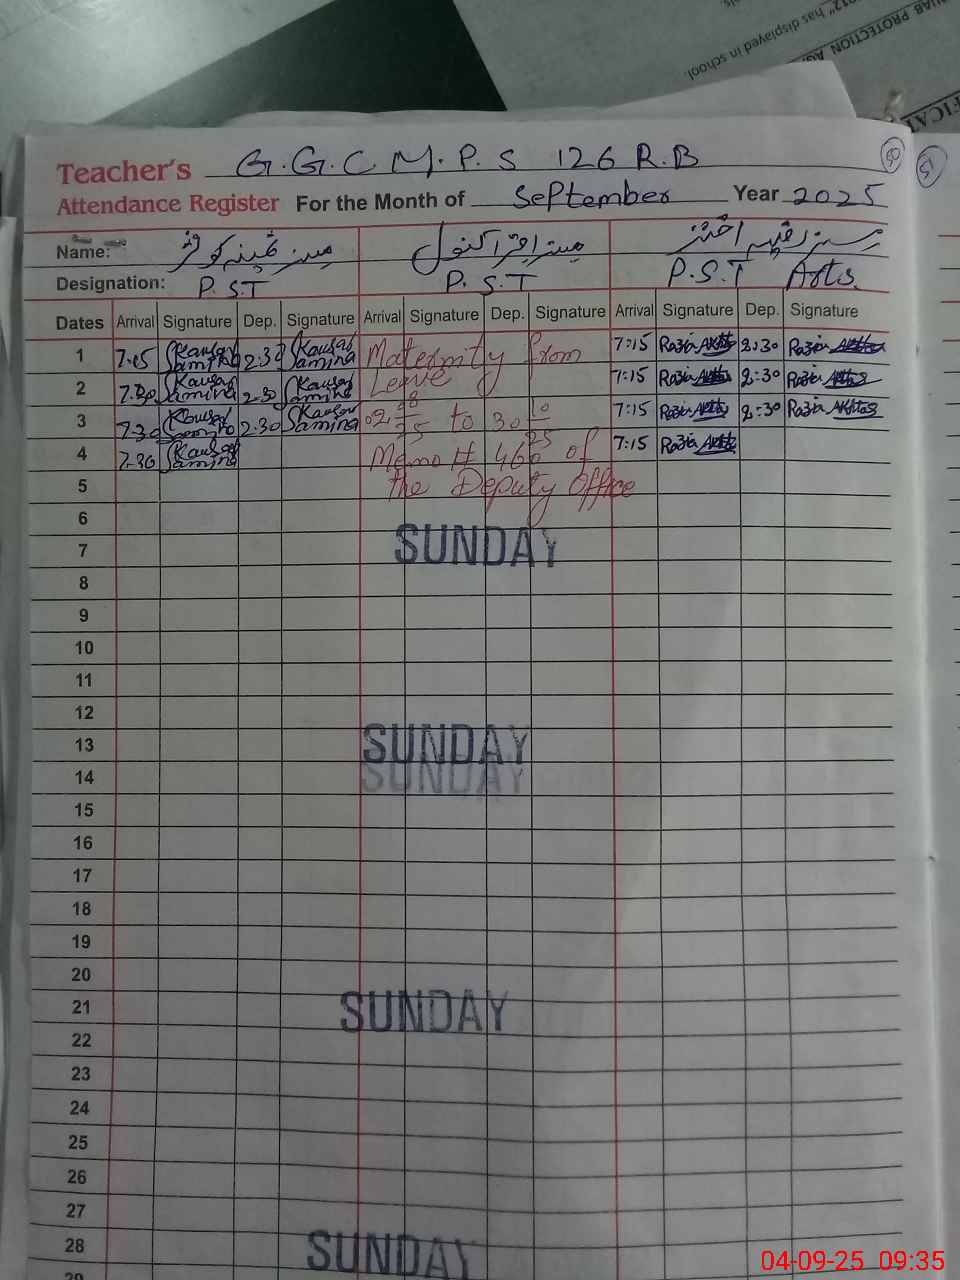 012" has displayed in school.
JAB PROTECTION
FICAT
50
51
Teacher's G.G.C.M.P.S 126 R.B
Attendance Register For the Month of September Year 2025
Name: مسز ثمینہ کوثر مسز اقرا کنول مسز رضیہ اختر
Designation: P.S.T P.S.T P.S.T Arts.
Dates Arrival Signature Dep. Signature Arrival Signature Dep. Signature Arrival Signature Dep. Signature
1 7:15 Kausar Samina 2:30 Kausar Samina Maternity from 7:15 Razia Akhtar 2:30 Razia Akhtar
2 7:30 Kausar Samina 2:30 Kausar Samina Leave 7:15 Razia Akhtar 2:30 Razia Akhtar
3 7:30 Kausar Samina 2:30 Kausar Samina 02 08/25 to 30 10/25 7:15 Razia Akhtar 2:30 Razia Akhtar
4 7:30 Kausar Samina Memo # 460 of 7:15 Razia Akhtar
5 the Deputy Office
6
7 SUNDAY
8
9
10
11
12
13 SUNDAY
14 SUNDAY
15
16
17
18
19
20
21 SUNDAY
22
23
24
25
26
27
28 SUNDAY
29
04-09-25 09:35